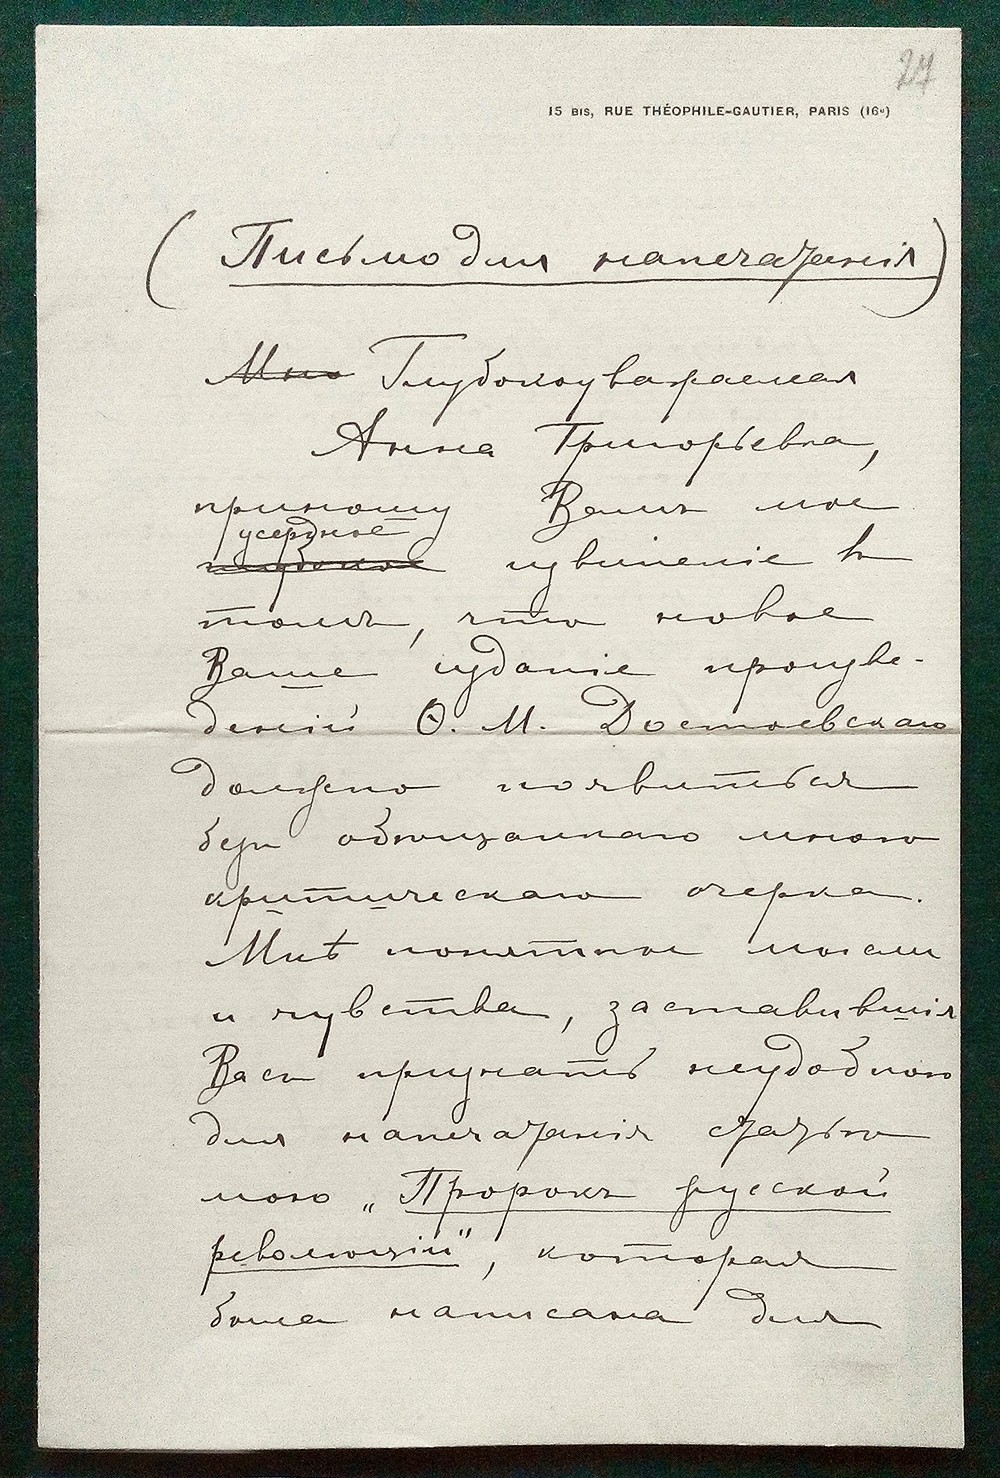 27
15 BIS, RUE THÉOPHILE-GAUTIER, PARIS (16e)
(Письмо для напечатанія)
Мно Глубокоуважаемая
Анна Григорьевна,
приношу Вамъ мое
усердное
глубокое извиненіе въ
томъ, что новое
Ваше изданіе произве-
деній Ѳ. М. Достоевскаго
должно появиться
безъ обѣщаннаго мною
критическаго очерка.
Мнѣ понятны мысли
и чувства, заставившія
Васъ признать неудобною
для напечатанія статью
мою „Пророкъ русской
революціи", которая
была написана для